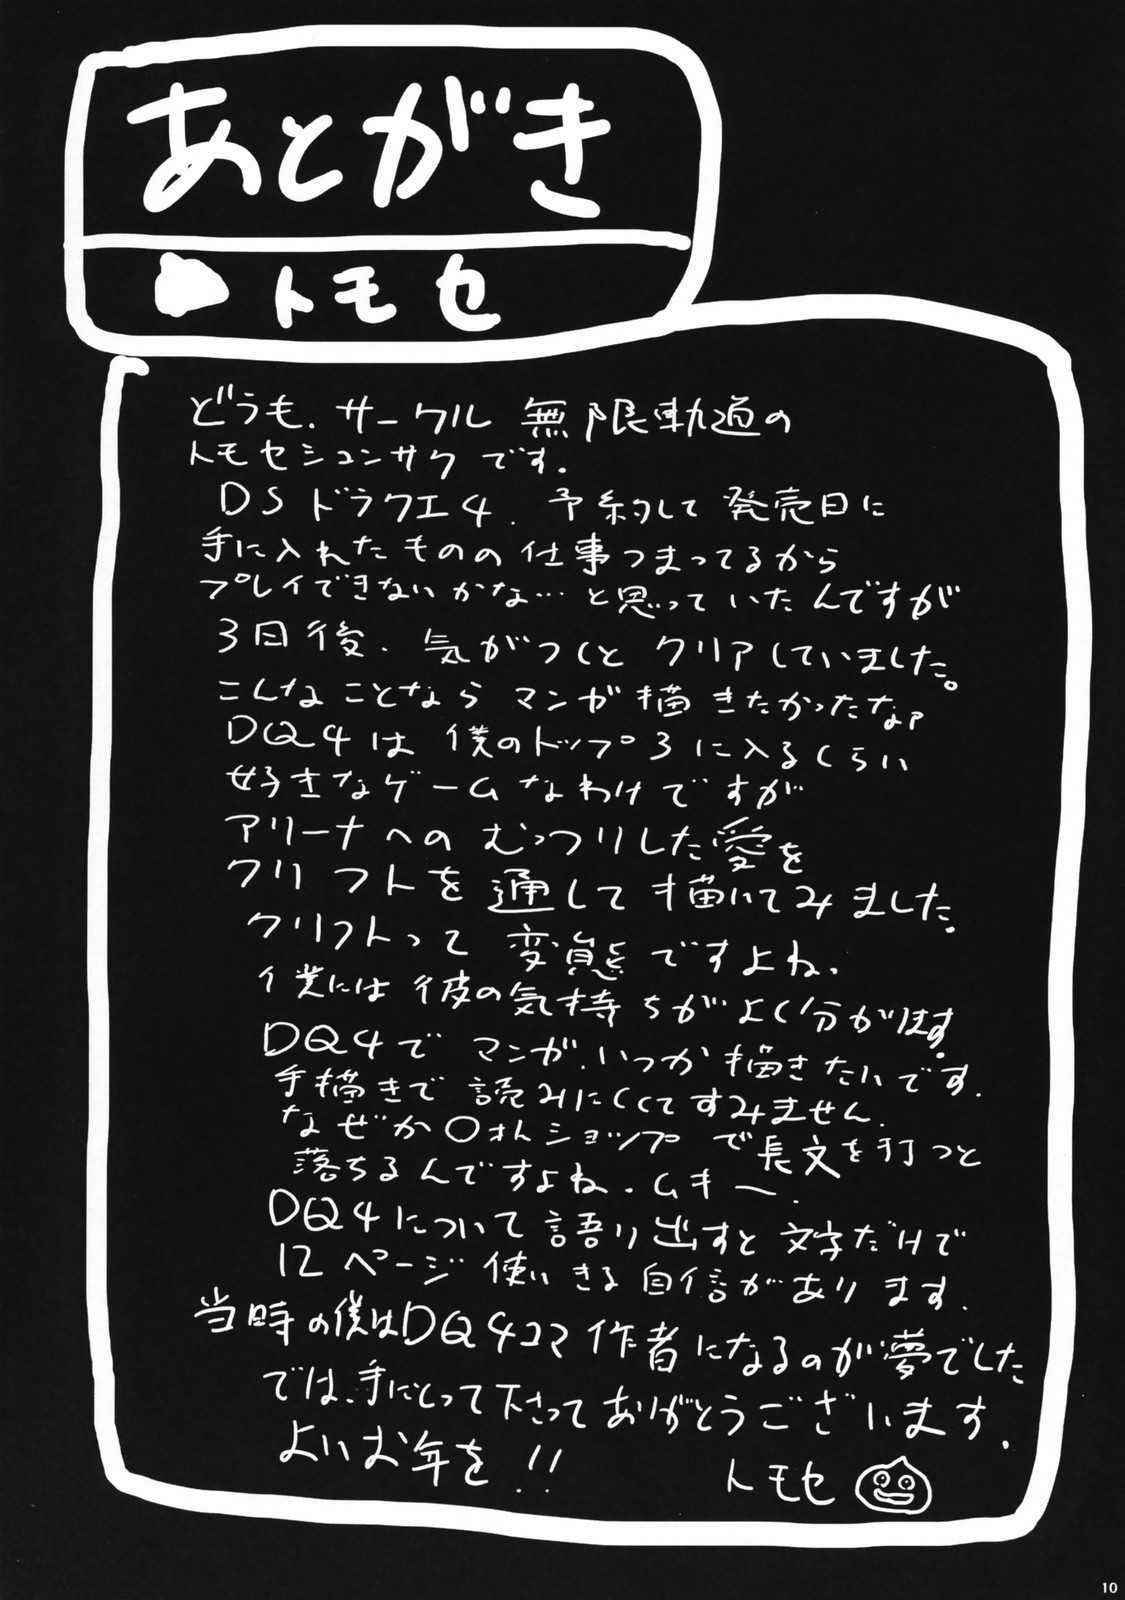 あとがき
トモセ
どうも、サークル 無限軌道の
トモセシュンサクです。
DSドラクエ4、予約して発売日に
手に入れたものの仕事つまってるから
プレイできないかな…と思っていたんですが
3日後、気がつくとクリアしていました。
こんなことならマンガ描きたかったなァ
DQ4は僕のトップ3に入るくらい
好きなゲームなわけですが
アリーナへのむっつりした愛を
クリフトを通して描いてみました。
クリフトって変態ですよね、
僕には彼の気持ちがよく分かります。
DQ4でマンガ、いつか描きたいです。
手描きで読みにくくてすみません。
なぜか〇ォトショップで長文を打つと
落ちるんですよね、ムキー。
DQ4について語り出すと文字だけで
12ページ使いきる自信があります。
当時の僕はDQ4コマ作者になるのが夢でした
では、手にとって下さってありがとうございます。
よいお年を!!
トモセ
10